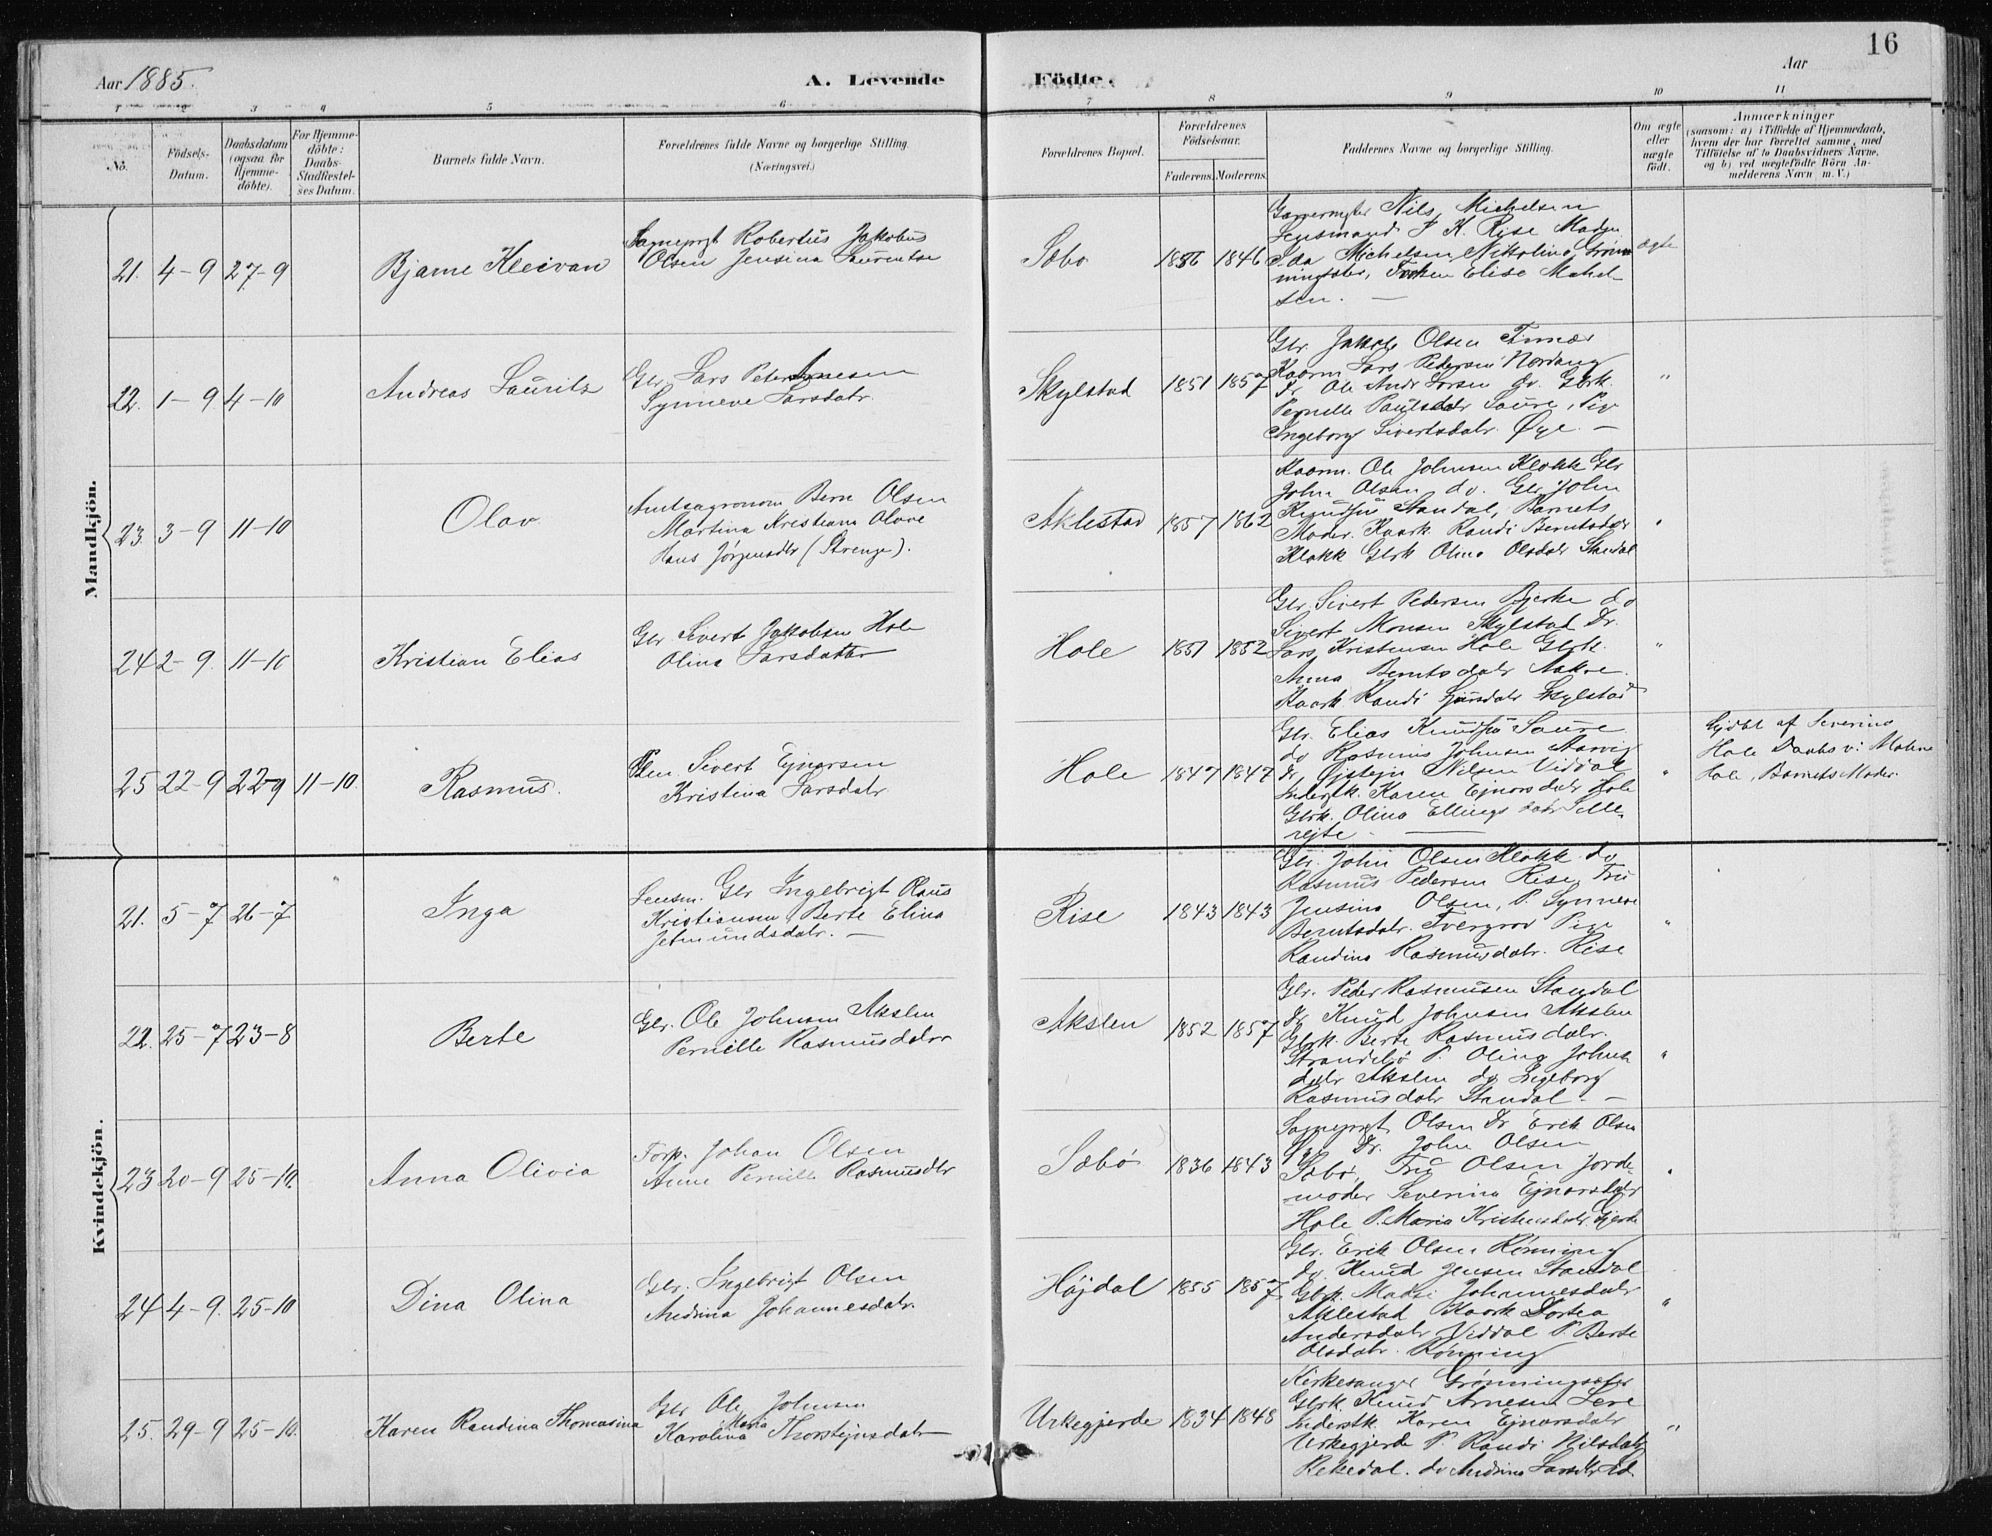 16
Aar 1885.
A. Levende Fødte.
Aar
1 2 3 4 5 6 7 8 9 10 11
No.
Födsels-Datum.
Daabsdatum (ogsaa for Hjemme-döbte).
For Hjemme-döbte: Daabs-Stadfæstel-ses Datum.
Barnets fulde Navn.
Forældrenes fulde Navne og borgerlige Stilling. (Næringsvei.)
Forældrenes Bopæl.
Forældrenes Födselsaar.
Faderens. Moderens.
Faddernes Navne og borgerlige Stilling.
Om ægte eller uægte födt.
Anmærkninger
(saasom: a) i Tilfælde af Hjemmedaab,
hvem der har forrettet samme, med
Tilföielse af to Daabsvidners Navne,
og b) ved uægtefödte Börn An-
melderens Navn m. V.)
Mandkjön.
21. 4-9 27-9
Bjarne Kleivan
Robertus Jakobus
Olsen Jensina Laurentse
Sæbø
1856 1846
Nils Michelsen
Lensmand P K Rise Madm
Ida Michelsen Nikoline Grøn-
ningsæter, Frøken Elise Michel-
sen. —
ægte
22. 1-9 4-10
Andreas Laurits
Gbr Lars Peter Arnesen
Synneve Larsdatr.
Skylstad
1851 1857
Gbr Jakob Olsen
Kaarm Lars Pedersen Nordang
Dr. Ole Andr Larsen do. Gbrk.
Pernille Paulsdatr Saure, Pige
Ingeborg Sivertsdatr. Øye. —
"
23. 3-9 11-10
Olav
Amtsagronom Bern Olsen
Martina Kristiane Olave
Hans Jørgensdtr (Strenge).
Aklestad
1857 1862
Kaarm. Ole Johnsen Klokk Gbr
John Olsen do. Gbr John
Standal, Barnets
Moder. Kaark. Randi Berntsdatr
Klokk Gbrk Oline Olsdatr Standal
"
24 2-9. 11-10
Kristian Elias
Gbr Sivert Jakobsen Hole
Olina Larsdatter
Hole
1851 1852
Gbr. Sivert Pedersen Bjerke do
Sivert Monsen Skylstad Dr.
Lars Kristensen Hole Gbrk.
Anna Berntsdatr Aakre.
Kaark Randi Skylstad
"
25 22-9 22-9 11-10.
Rasmus.
Sivert Ejnarsen
Kristina Larsdatr
Hole
1847 1847
Gbr. Elias Saure
do Rasmus Johnsen Aarvig
Dr. Øjstejn Nilsen Viddal
Karen Ejnarsdatr Hole
Gbrk. Olina Ellingsdatr Sille-
rejte —
"
Hjdbt af Severine
Hole Daabsv: Malene
Hole, Barnets Moder.
Kvindekjön.
21. 5-7 26-7
Inga
Lensm. Gbr Ingebrigt Olaus
Kristiansen, Berte Elina
Jetmundsdatr. —
Rise
1843 1843
Gbr. John Olsen Klokk do
Rasmus Pedersen Rise, Fru
Jensine Olsen, P. Synneve
Berntsdatr. Tvergrov Pige
Randine Rasmusdatr. Rise
"
22. 25-7 23-8
Berte
Gbr. Ole Johnsen Akslen
Pernille Rasmusdatr
Akslen
1852 1857
Gbr. Peder Rasmussen Standal
Dr. Knud Johnsen Akslen
Gbrk. Berte Rasmusdatr.
P. Olina Johns-
datr Akslen do Ingeborg
Rasmusdatr Standal. —
"
23 20-9 25-10.
Anna Olivia
Forp. Johan Olsen
Anne Pernille Rasmusdtr
Sæbø
1836 1843
Olsen Dr Erik Olsen
Dr. John Olsen
Sæbø, Fru Olsen Jorde-
moder Severina Ejnarsdatr
Hole P. Maria Kristensdatr. Gjerde
"
24 4-9. 25-10
Dina Olina
Gbr. Ingebrigt Olsen
Andrina Johannesdatr
Højdal
1855 1857
Gbr. Erik Olsen Rønning
do Knud Jensen Standal
Gbrk. Madsi Johannesdatr
Aklestad Kaark Dortea
Andersdatr Viddal P. Berte
Olsdatr. Rønning
"
25. 29-9 25-10.
Karen Randina Thomasina
Gbr Ole Johnsen
Karolina Maria Thorstejnsdatr
Urkegjerde
1834 1848
Kirkesanger Grønningsæter
Gbrk. Knud Arnesen Leve
Karen Ejnarsdatr
Urkegjerde P. Randi Nilsdatr
Rekkedal. do Andrine Larsdtr
"